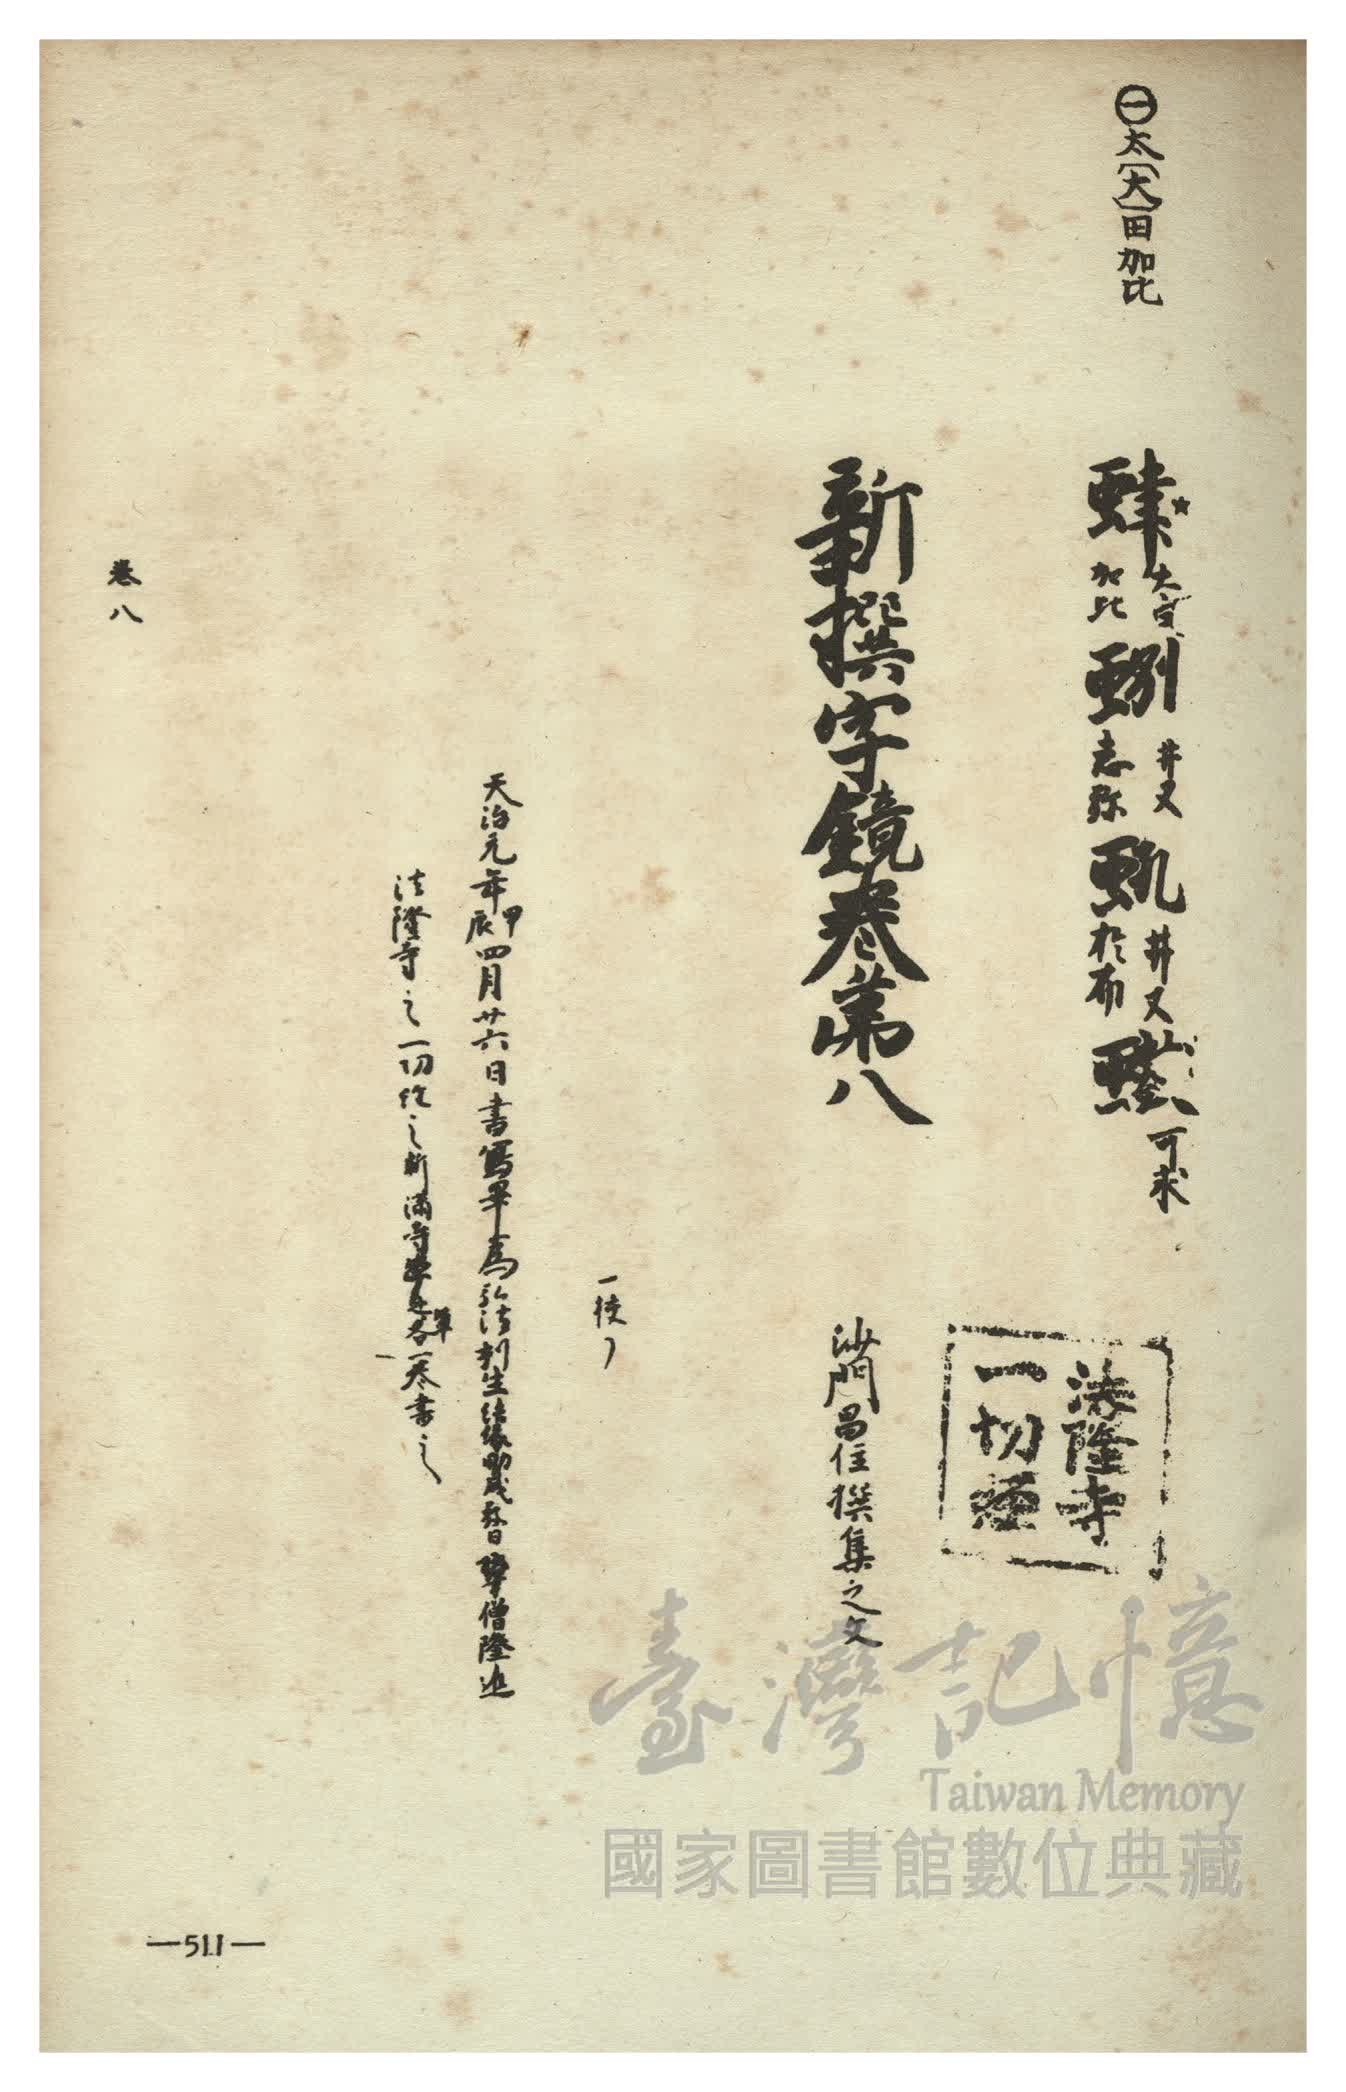 ㊀太(大)田加比
大田加比
井又志弥
井又於布
可求
法隆寺
一切經
新撰字鏡卷第八
沙門昌住撰集之文
一校了
天治元年甲辰四月廿六日書寫畢為弘法利生結緣
僧隆進
法隆寺之一切經之料滿寺學衆各一卷書之
卷八
—511—
臺灣記憶
Taiwan Memory
國家圖書館數位典藏